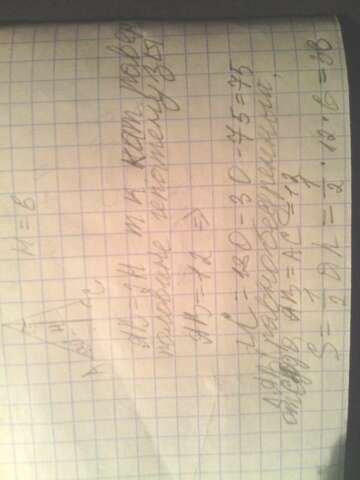 H = 6
AB = 2H т к кат. равен
половине гипотенузы
AB = 12 ⇒
∠C = 180 - 30 - 75 = 75
ABC равнобедренный,
AB = AC = 12
S = 1/2 ah = 1/2 · 12 · 6 = 36